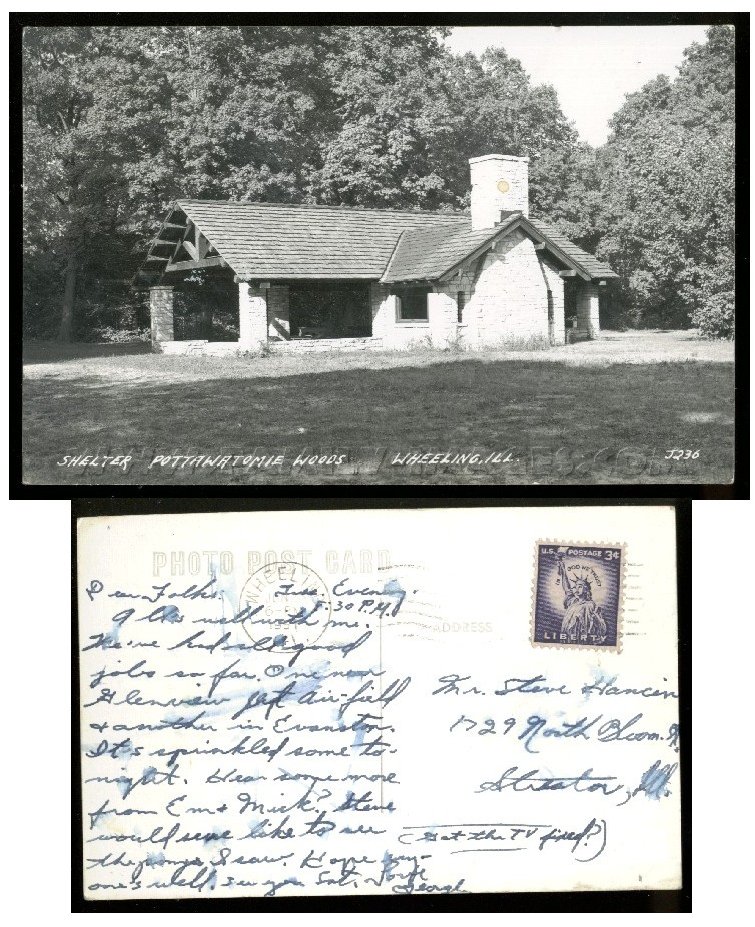 SHELTER POTTAWATOMIE WOODS WHEELING, ILL. J236
PHOTO POST CARD
WHEELING
U.S. POSTAGE 3¢
IN GOD WE TRUST
LIBERTY
ADDRESS
Dear Folks: Tues. Evening.
8:30 P.M.
All is well with me.
We've had all good
jobs so far. One near
Glenview Jet Air-field
& another in Evanston.
It's sprinkled some to-
night. Hear some more
from Em & Mick? Steve
would sure like to see
the ponys I saw. Hope any-
one's well. See you Sat. Love
George
Mr. Steve Hancin
1729 North Bloom. St.
Streator, Ill.
(Get the TV fixed?)